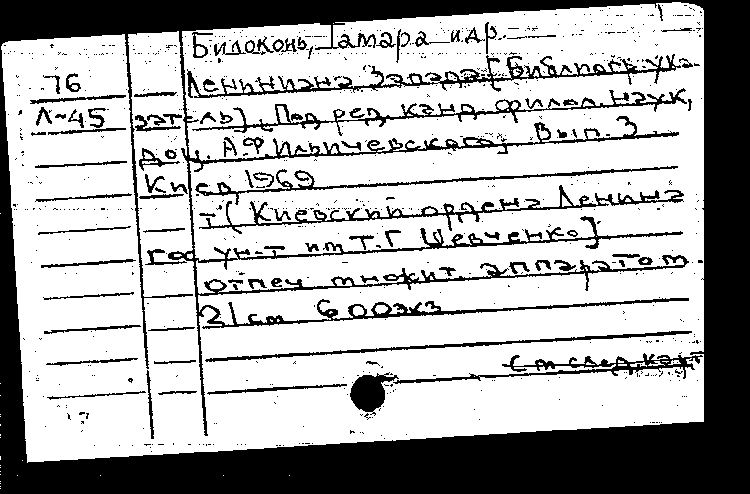 Билоконь, Тамара и др.
76 Лениниана Запада [Библиогр. ука-
Л-45 затель]. Под ред. канд. филол. наук,
доц. А.Ф. Ильичевского, Вып. 3
Киев 1969
т ( Киевский ордена Ленина
гос ун-т им Т.Г Шевченко]
отпеч множит. аппаратом.
21 см 600экз
См след. карт